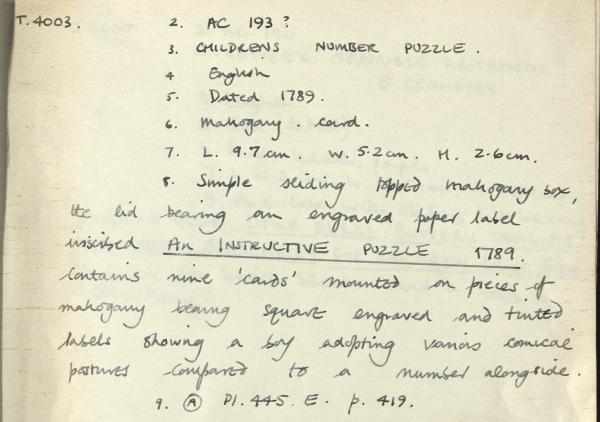 T.4003. 2. AC 193?
3. CHILDRENS NUMBER PUZZLE.
4 English
5. Dated 1789.
6. Mahogany. card.
7. L. 9.7cm. W. 5.2cm. H. 2.6cm.
8. Simple sliding topped mahogany box,
the lid bearing an engraved paper label
inscribed AN INSTRUCTIVE PUZZLE 1789.
Contains nine 'cards' mounted on pieces of
mahogany bearing square engraved and tinted
labels showing a boy adopting various comical
postures compared to a number alongside.
9. A Pl. 445. E. p. 419.